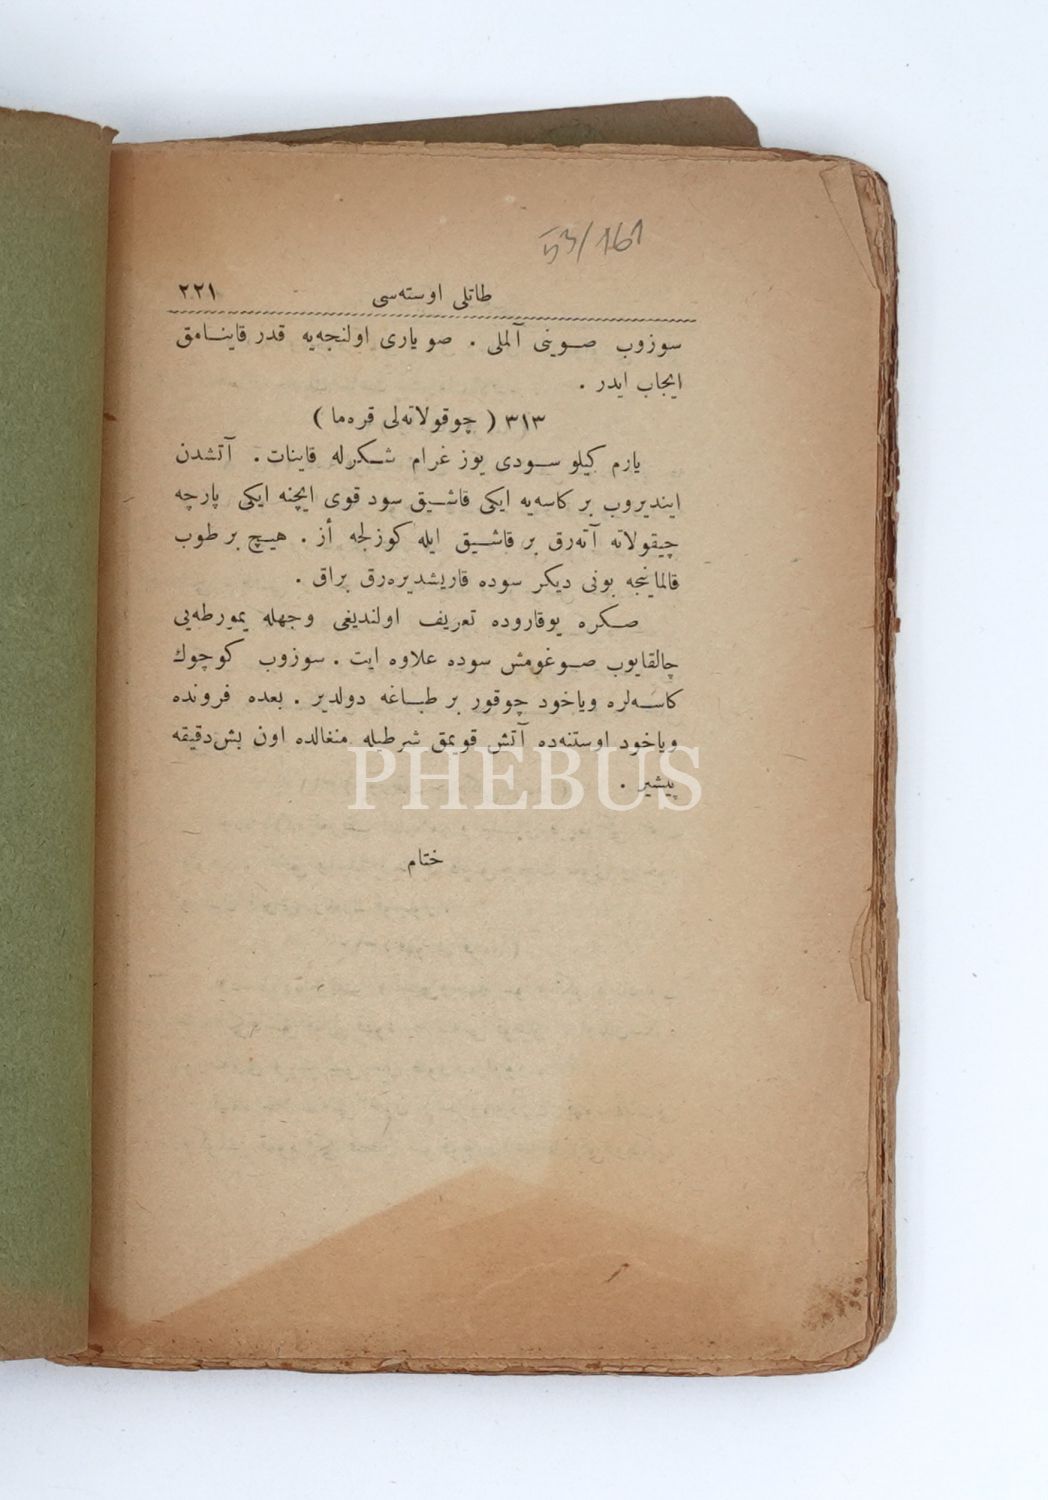 53/161
طاتلی اوسته‌سی ٢٢١
سوزوب صوینی آلملی . صو یاری اولنجه‌یه قدر قاینامق
ایجاب ایدر .
٣١٣ ( چوقولاته‌لی قره‌ما )
یارم کیلو سودی یوز غرام شکرله قاینات . آتشدن
ایندیروب بر کاسه‌یه ایکی قاشیق سود قوی ایچنه ایکی پارچه
چیقولاته آته‌رق بر قاشیق ایله کوزلجه أز . هیچ بر طوب
قالماینجه بونی دیکر سوده قاریشدیره‌رق براق .
صکره یوقاروده تعریف اولندیغی وجهله یمورطه‌یی
چالقایوب صوغومش سوده علاوه ایت . سوزوب کوچوك
کاسه‌لره ویاخود چوقور بر طباغه دولدیر . بعده فرونده
ویاخود اوستنه‌ده آتش قویمق شرطیله منغالده اون بش دقیقه
پیشیر .
PHEBUS
ختام